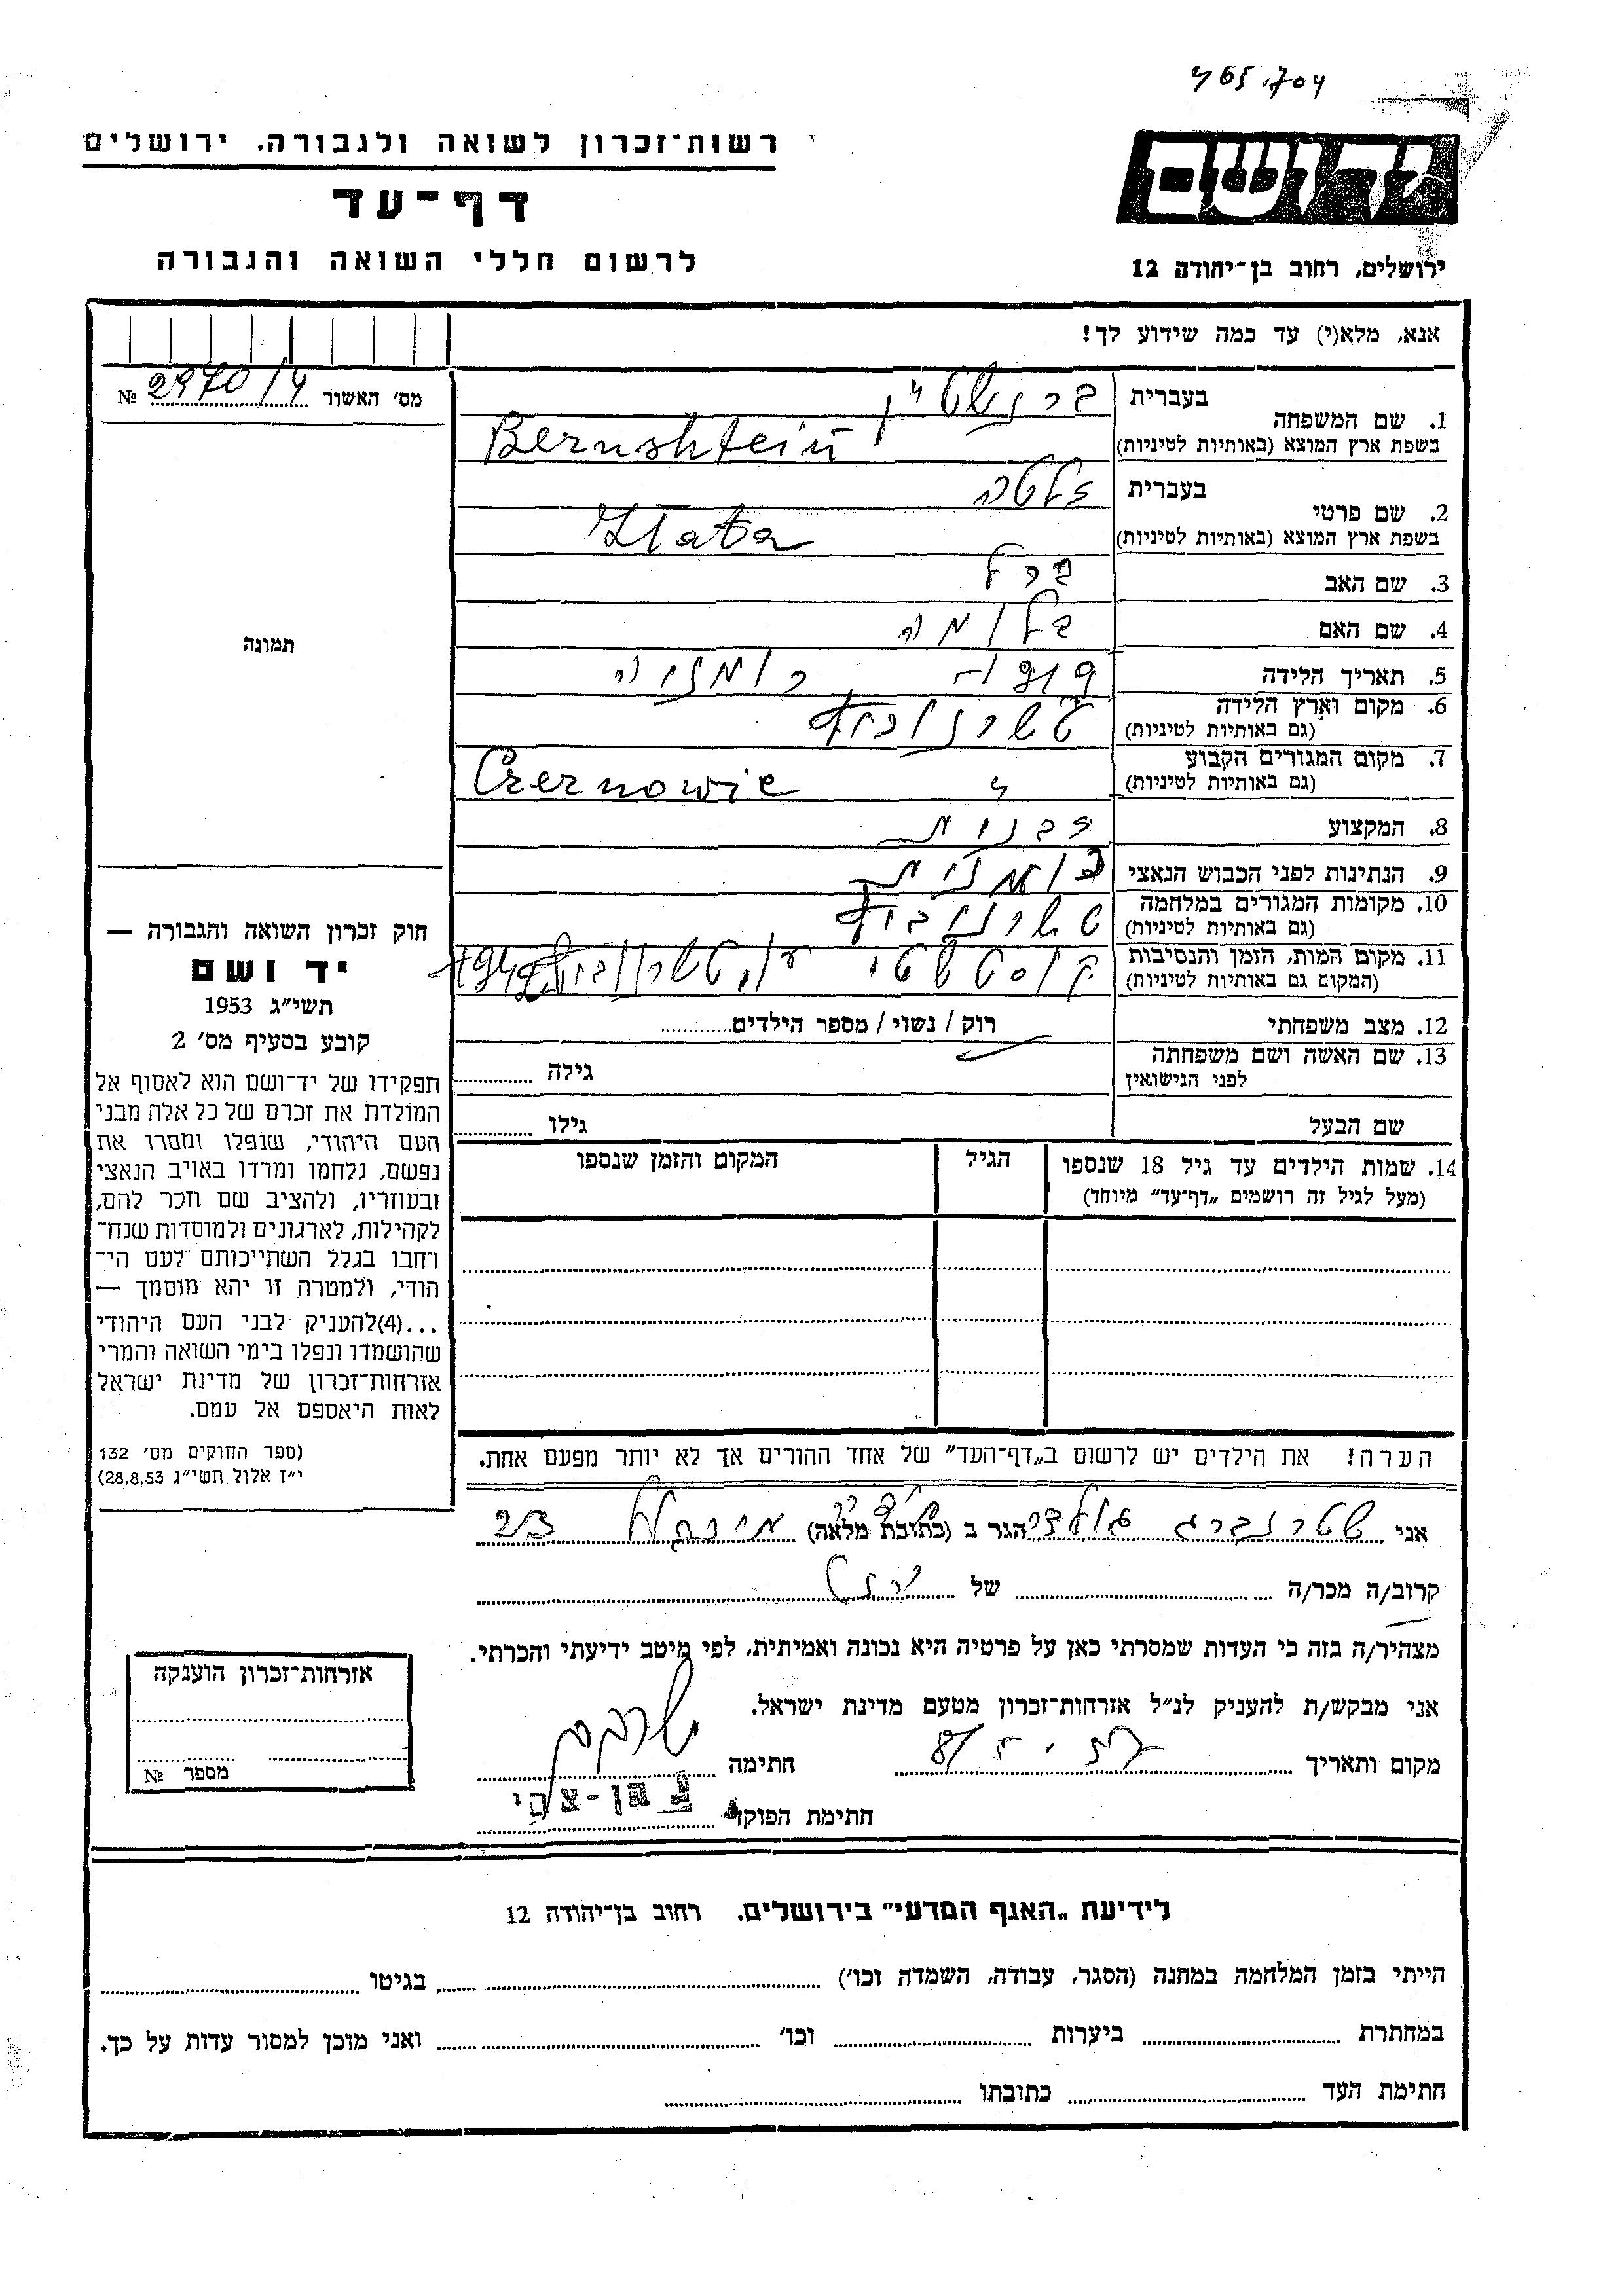 465.704
רשות־זכרון לשואה ולגבורה. ירושלים
דף־עד
לרשום חללי השואה והגבורה
יד ושם
ירושלים, רחוב בן־יהודה 12
אנא, מלא(י) עד כמה שידוע לך!
מס׳ האשור 2970/4 №
1. שם המשפחה
בעברית ברנשטיין
בשפת ארץ המוצא (באותיות לטיניות) Bernshtein
2. שם פרטי
בעברית זלטה
בשפת ארץ המוצא (באותיות לטיניות) Zlata
3. שם האב ברל
4. שם האם בלומה
5. תאריך הלידה רומניה
6. מקום וארץ הלידה
(גם באותיות לטיניות)
7. מקום המגורים הקבוע
(גם באותיות לטיניות) Czernowic
8. המקצוע זבנית
9. הנתינות לפני הכבוש הנאצי רומנית
10. מקומות המגורים במלחמה
(גם באותיות לטיניות)
11. מקום המות, הזמן והנסיבות
(המקום גם באותיות לטיניות)
12. מצב משפחתי רוק / נשוי / מספר הילדים
13. שם האשה ושם משפחתה
לפני הנישואין גילה
שם הבעל גילו
14. שמות הילדים עד גיל 18 שנספו הגיל המקום והזמן שנספו
(מעל לגיל זה רושמים „דף־עד” מיוחד)
הערה! את הילדים יש לרשום ב„דף־העד” של אחד ההורים אך לא יותר מפעם אחת.
תמונה
חוק זכרון השואה והגבורה —
יד ושם
תשי״ג 1953
קובע בסעיף מס׳ 2
תפקידו של יד־ושם הוא לאסוף אל
המולדת את זכרם של כל אלה מבני
העם היהודי, שנפלו ומסרו את
נפשם, נלחמו ומרדו באויב הנאצי
ובעוזריו, ולהציב שם וזכר להם,
לקהילות, לארגונים ולמוסדות שנח־
רחבו בגלל השתייכותם לעם הי־
הודי, ולמטרה זו יהא מוסמך —
...(4)להעניק לבני העם היהודי
שהושמדו ונפלו בימי השואה והמרי
אזרחות־זכרון של מדינת ישראל
לאות היאספם אל עמם.
(ספר החוקים מס׳ 132
י״ז אלול תשי״ג 28.8.53)
אני שטרנברג הגר ב (כתובת מלאה)
קרוב/ה מכר/ה של
מצהיר/ה בזה כי העדות שמסרתי כאן על פרטיה היא נכונה ואמיתית, לפי מיטב ידיעתי והכרתי.
אני מבקש/ת להעניק לנ״ל אזרחות־זכרון מטעם מדינת ישראל.
מקום ותאריך חתימה
חתימת הפוקד בן-צבי
אזרחות־זכרון הוענקה
מספר №
לידיעת „האגף המדעי” בירושלים. רחוב בן־יהודה 12
הייתי בזמן המלחמה במחנה (הסגר, עבודה, השמדה וכו׳) בגיטו
במחתרת ביערות וכו׳ ואני מוכן למסור עדות על כך.
חתימת העד כתובתו